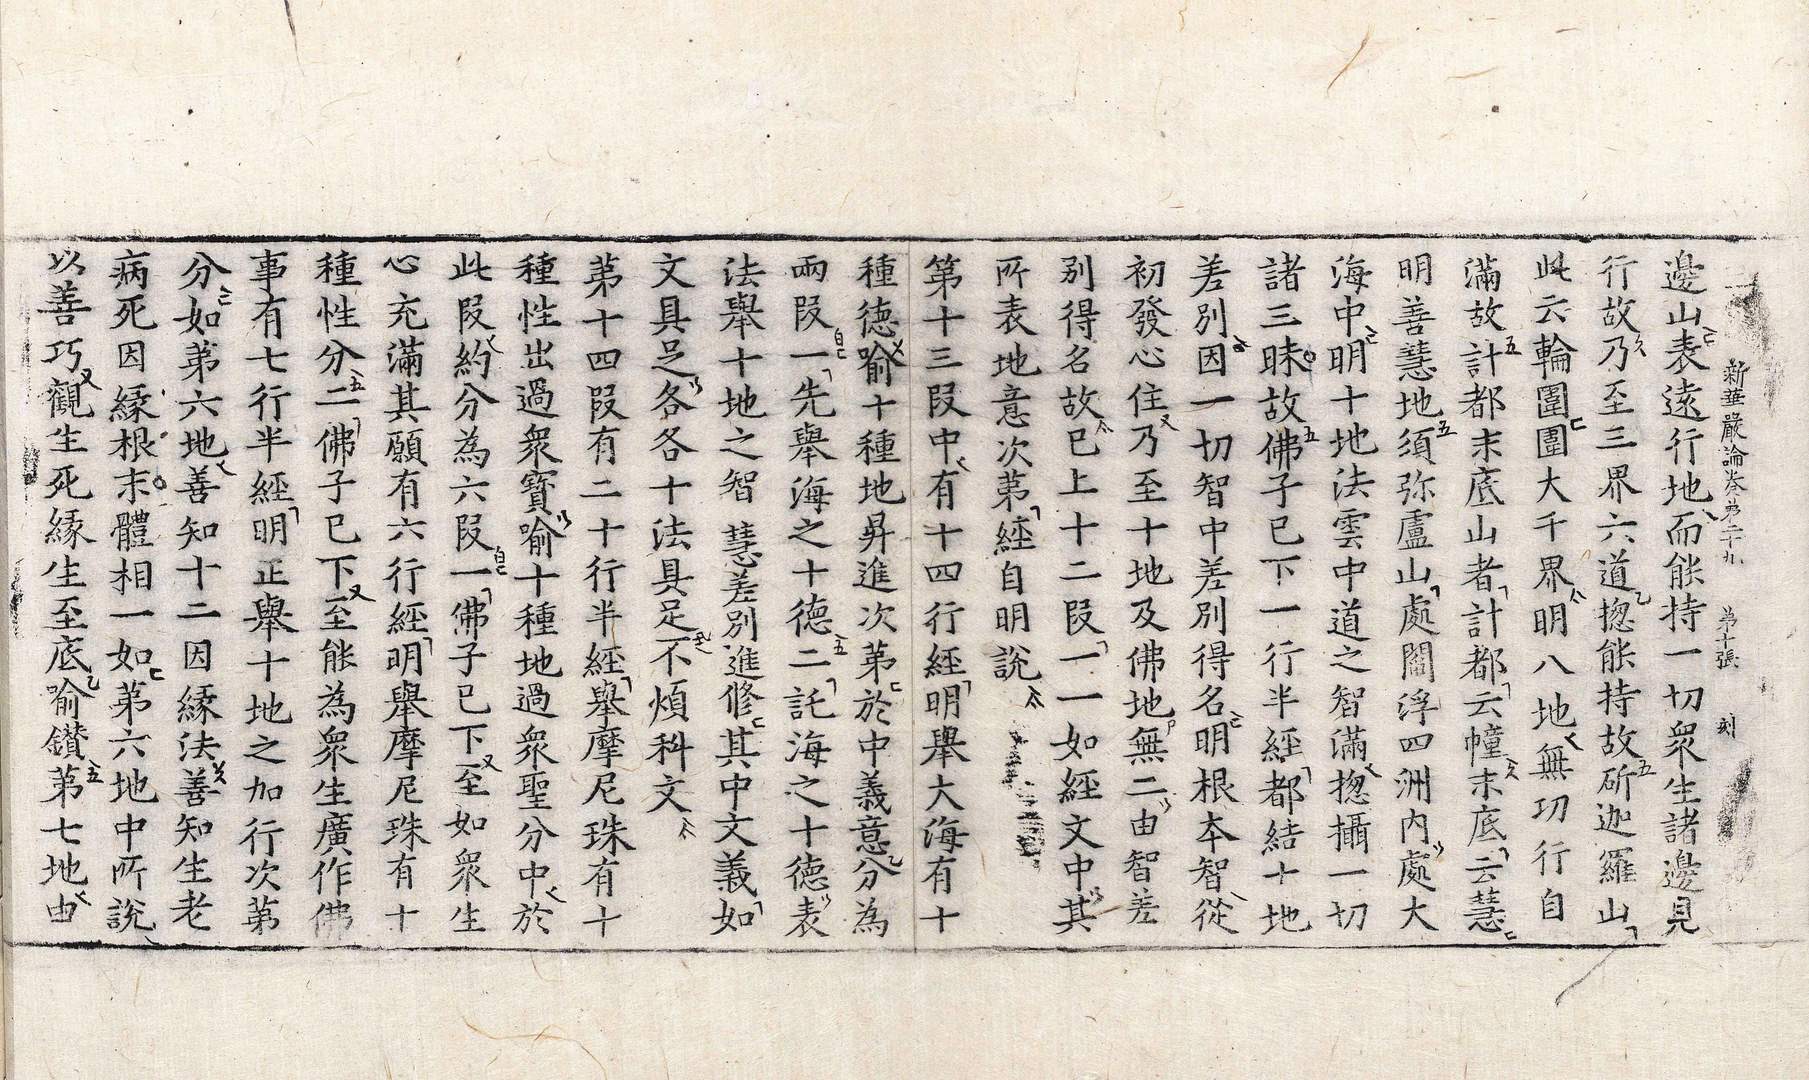 新華嚴論卷第二十九 第十張 刻
邊山表遠行地而能持一切衆生諸邊見
行故乃至三界六道揔能持故斫迦羅山
此云輪圍圍大千界明八地無功行自
滿故計都末底山者計都云幢末底云慧
明善慧地須弥盧山處閻浮四洲内處大
海中明十地法雲中道之智滿揔攝一切
諸三昧故佛子已下一行半經都結十地
差別因一切智中差別得名明根本智從
初發心住乃至十地及佛地無二由智差
別得名故已上十二段一一如經文中其
所表地意次第經自明說
第十三段中有十四行經明舉大海有十
種德喻十種地昇進次第於中義意分為
兩段一先舉海之十德二託海之十德表
法舉十地之智慧差別進修其中文義如
文具足各各十法具足不煩科文
第十四段有二十行半經舉摩尼珠有十
種性出過衆寶喻十種地過衆聖分中於
此段約分為六段一佛子已下至如衆生
心充滿其願有六行經明舉摩尼珠有十
種性分二佛子已下至能為衆生廣作佛
事有七行半經明正舉十地之加行次第
分如第六地善知十二因緣法善知生老
病死因緣根末體相一如第六地中所說
以善巧觀生死緣生至底喻鑚第七地由